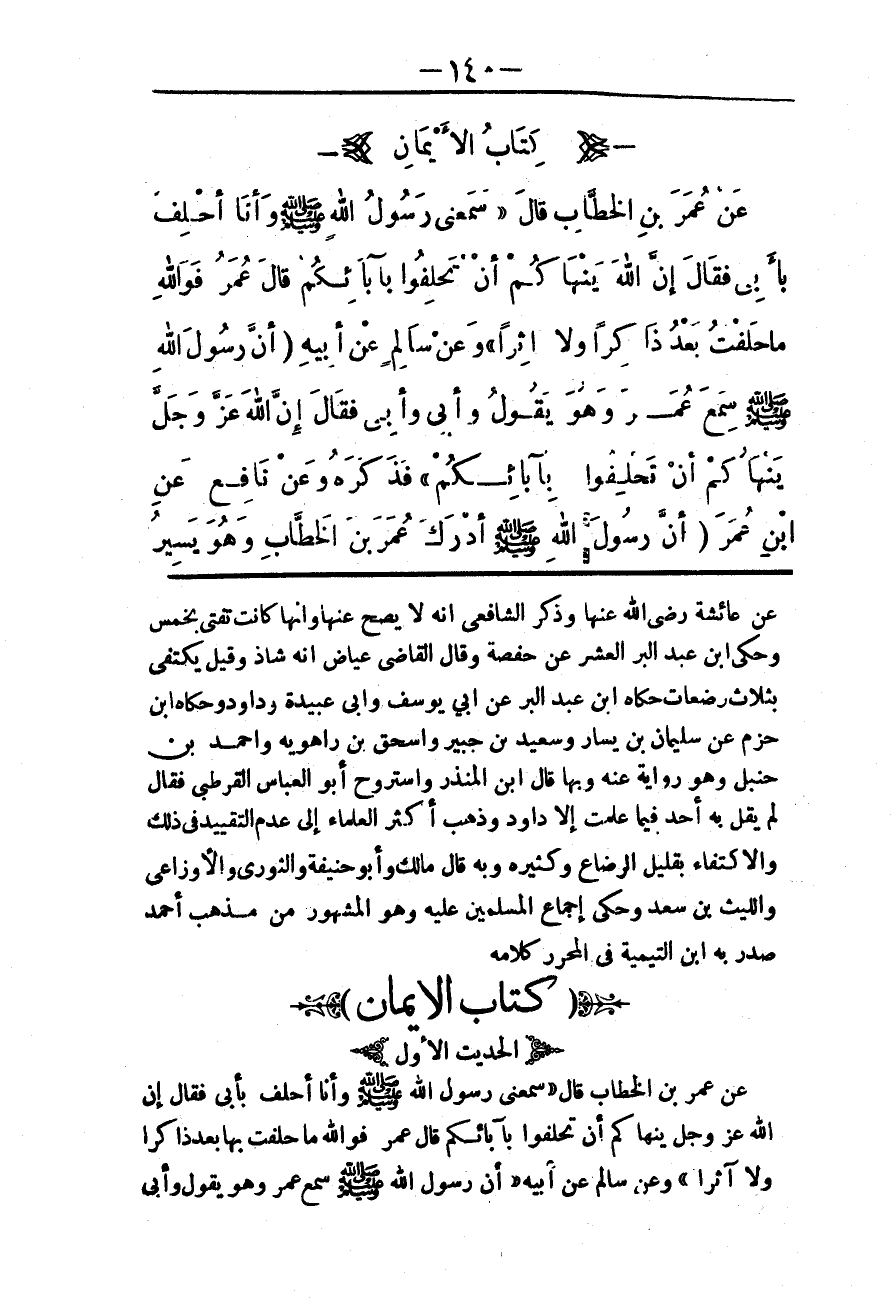 — ١٤٠ —
كِتَابُ الأَيْمَانِ
عَنْ عُمَرَ بنِ الخطَّابِ قالَ « سَمعَنى رَسُولُ اللهِ ﷺ وَأَنَا أحْلِفُ
بأَبِى فقَالَ إنَّ اللهَ يَنْهَاكُمْ أنْ تَحلِفُوا بآبَائِكُمْ قالَ عُمَرُ فَوَاللهِ
ماحَلَفْتُ بَعْدُ ذَاكِراً ولا اثِراً» وَعَنْ سَالِمٍ عنْ أبيهِ ( أنَّ رسُولَ اللهِ
ﷺ سِمَعَ عُمَرَ وَهُوَ يَقُولُ وأبى وأبى فقَالَ إنَّ اللهَ عَزَّ وَجَلَّ
يَنْهَاكُمْ أنْ تَحْلِفُوا بِآبَائِكُمْ» فَذَكَرَهُ وَعَنْ نَافِعٍ عَنِ
ابْنِ عُمَرَ ( أنَّ رسُولَ اللهِ ﷺ أدْرَكَ عُمَرَ بنَ الخطَّابِ وَهُوَ يَسِيرُ
عن عائشة رضى الله عنها وذكر الشافعى انه لا يصح عنها وانها كانت تفتى بخمس
وحكى ابن عبد البر العشر عن حفصة وقال القاضى عياض انه شاذ وقيل يكتفى
بثلاث رضعات حكاه ابن عبد البر عن ابي يوسف وابى عبيدة وداود وحكاه ابن
حزم عن سليمان بن يسار وسعيد بن جبير واسحق بن راهويه واحمد بن
حنبل وهو رواية عنه وبها قال ابن المنذر واستروح أبو العباس القرطبي فقال
لم يقل به أحد فيما علمت إلا داود وذهب أكثر العلماء إلى عدم التقييد فى ذلك
والاكتفاء بقليل الرضاع وكثيره وبه قال مالك وأبو حنيفة والثورى والأوزاعى
والليث بن سعد وحكى إجماع المسلمين عليه وهو المشهور من مذهب أحمد
صدر به ابن التيمية فى المحرر كلامه
( كتاب الايمان )
الحديث الأول
عن عمر بن الخطاب قال «سمعنى رسول الله ﷺ وأنا أحلف بأبى فقال إن
الله عز وجل ينهاكم أن تحلفوا بآبائكم قال عمر فوالله ما حلفت بها بعد ذاكرا
ولا آثرا » وعن سالم عن أبيه « أن رسول الله ﷺ سمع عمر وهو يقول وأبى